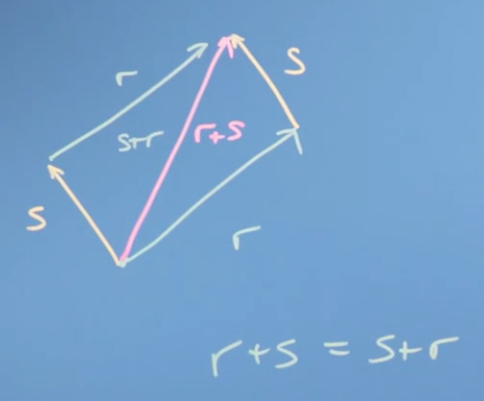 r
s
s+r
r+s
s
r
r+s = s+r